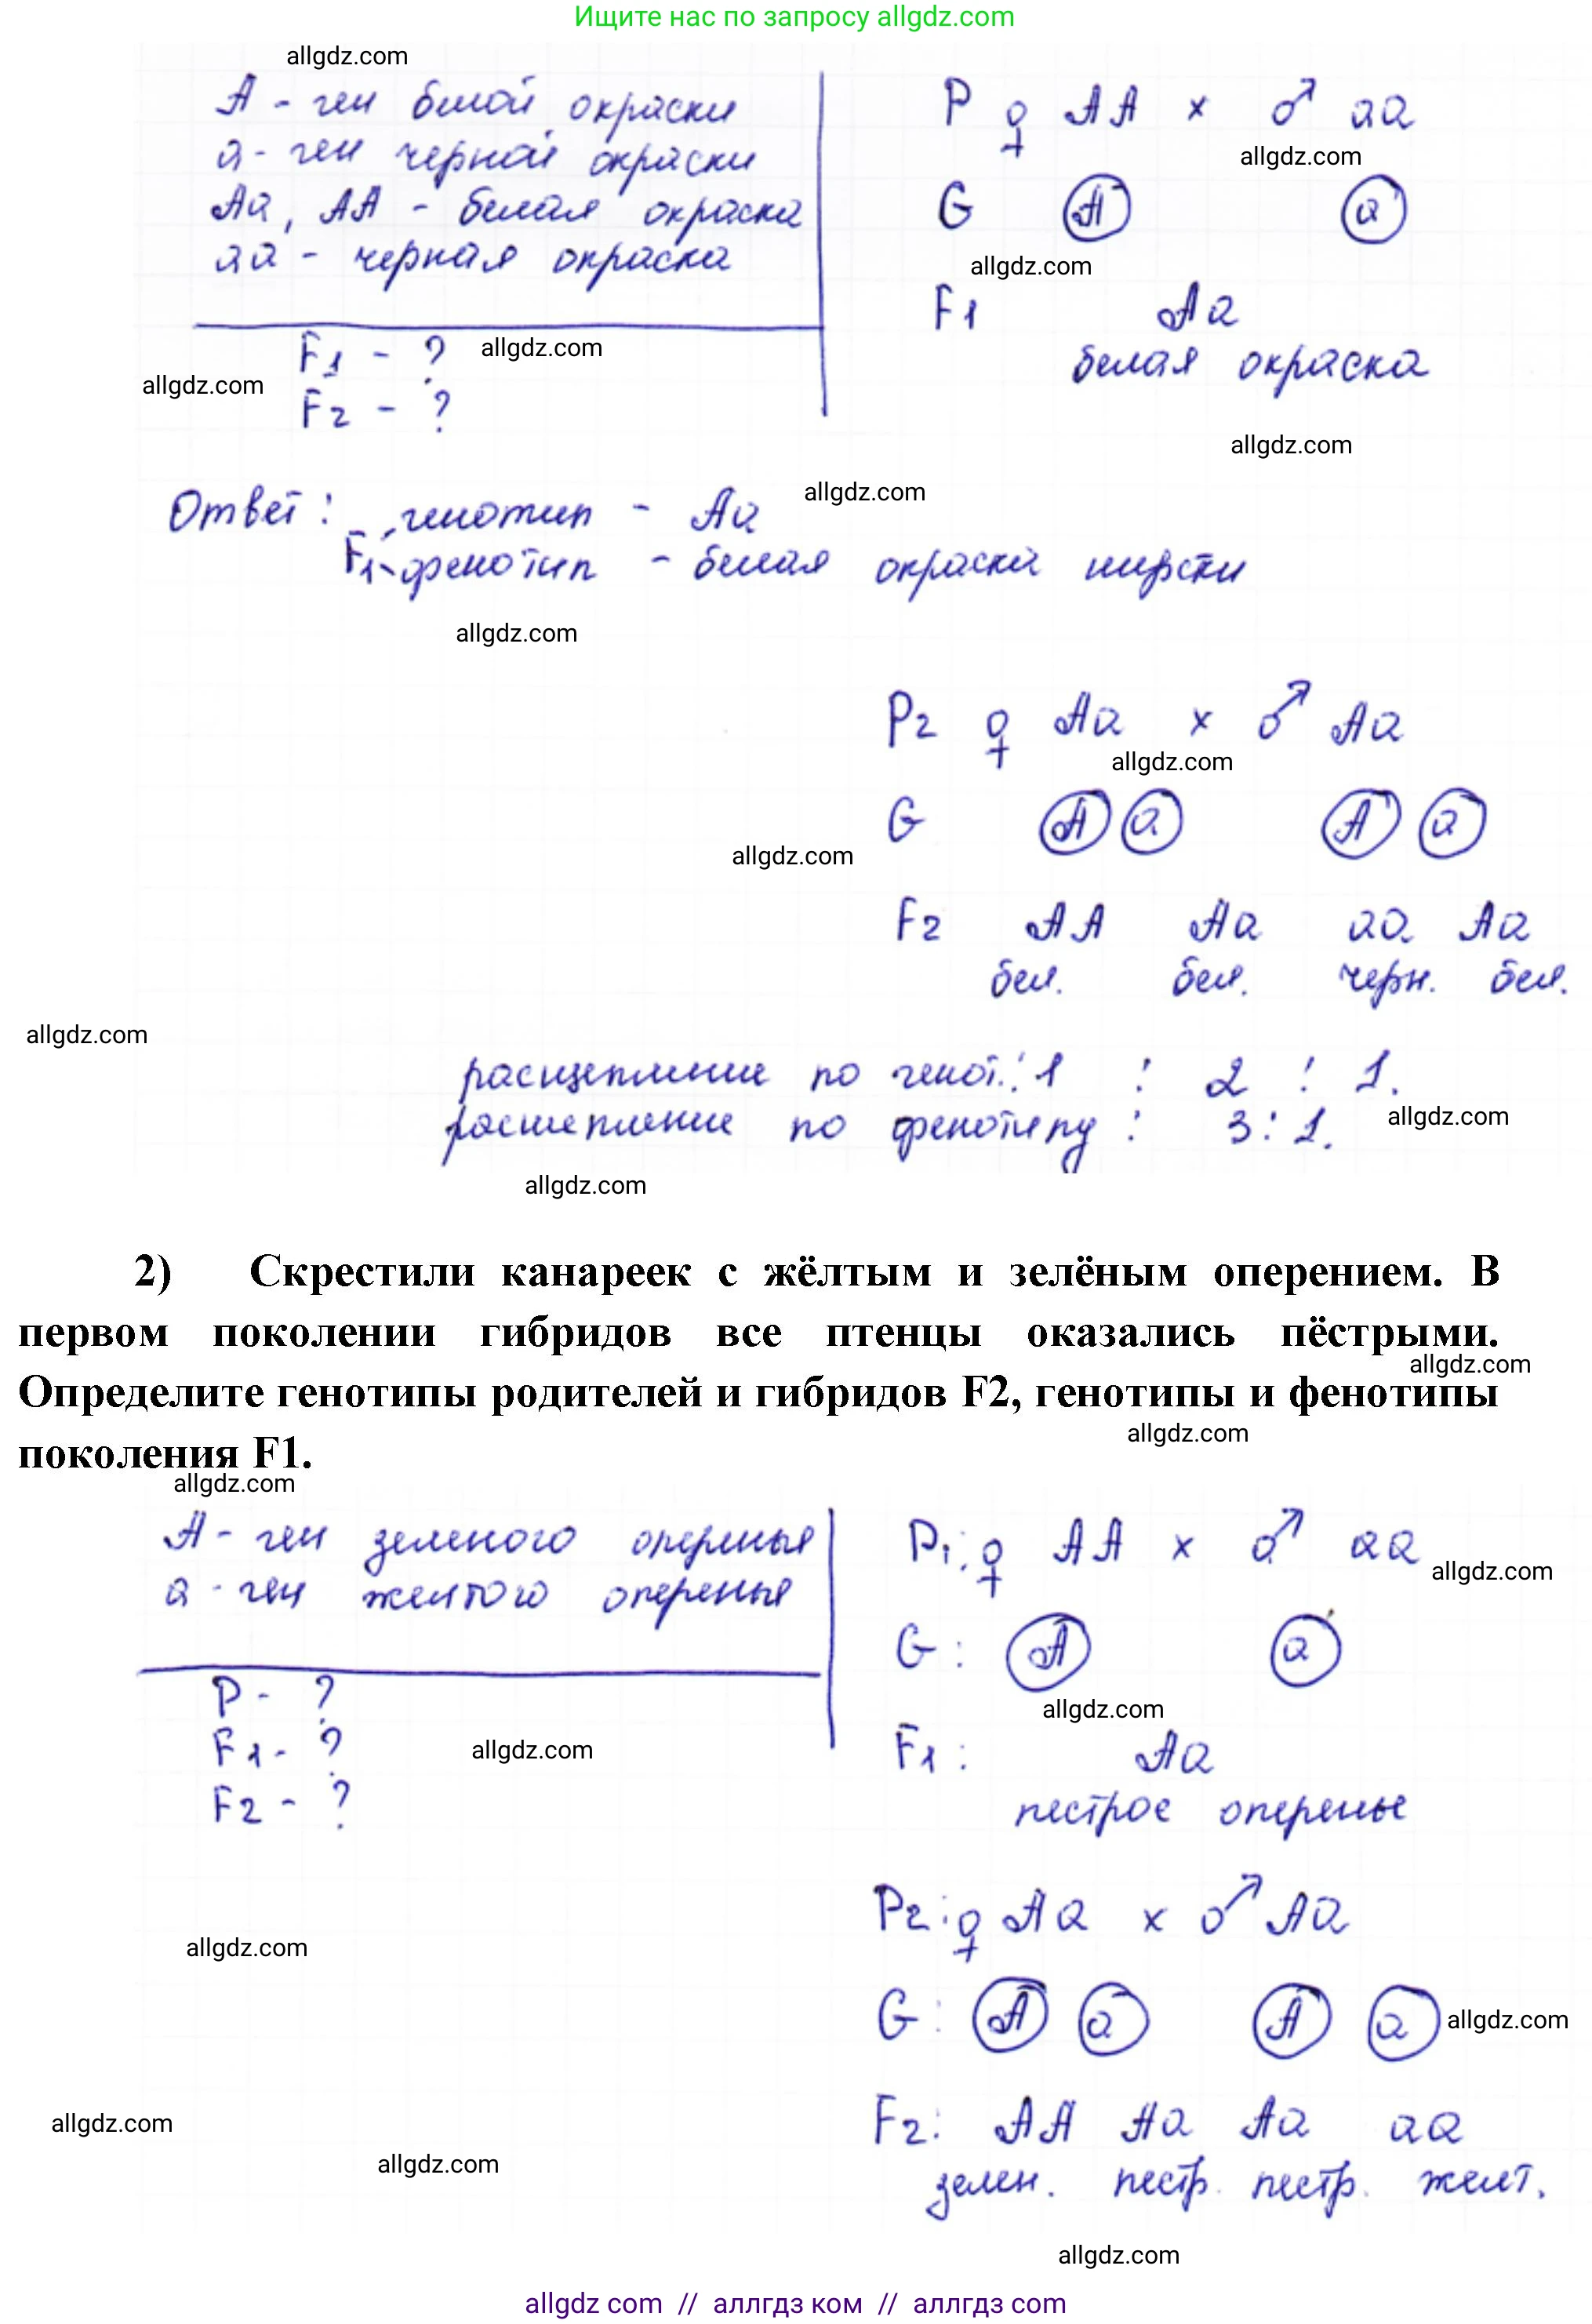 Ищите нас по запросу allgdz.com
allgdz.com
А - ген белой окраски
а - ген черной окраски
Аа, АА - белая окраска
аа - черная окраска
F1 - ?
F2 - ?
allgdz.com
allgdz.com
P ♀ АА × ♂ аа
allgdz.com
G А а
allgdz.com
F1 Аа
белая окраска
allgdz.com
Ответ: генотип - Аа
allgdz.com
F1 фенотип - белая окраска шерсти
allgdz.com
P2 ♀ Аа × ♂ Аа
allgdz.com
G А а А а
allgdz.com
F2 АА Аа аа Аа
бел. бел. черн. бел.
allgdz.com
расщепление по генот.: 1 : 2 : 1.
расщепление по фенотипу: 3:1.
allgdz.com
allgdz.com
2) Скрестили канареек с жёлтым и зелёным оперением. В
первом поколении гибридов все птенцы оказались пёстрыми.
allgdz.com
Определите генотипы родителей и гибридов F2, генотипы и фенотипы
allgdz.com
поколения F1.
allgdz.com
А - ген зеленого оперенья
а - ген желтого оперенья
P - ?
F1 - ?
F2 - ?
allgdz.com
P1: ♀ АА × ♂ аа
allgdz.com
G: А а
allgdz.com
F1: Аа
пестрое оперенье
P2: ♀ Аа × ♂ Аа
allgdz.com
G: А а А а
allgdz.com
F2: АА Аа Аа аа
allgdz.com
allgdz.com
зелен. пестр. пестр. желт.
allgdz.com
allgdz com // аллгдз ком // аллгдз com